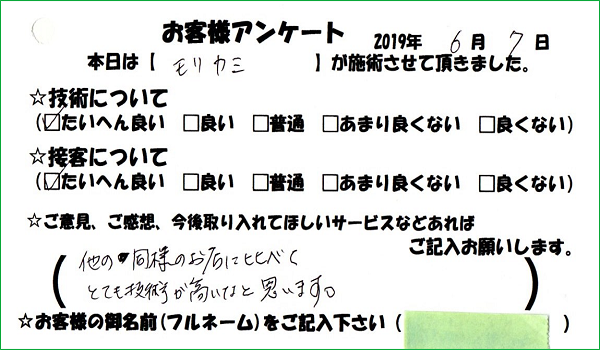 お客様アンケート 2019年 6月 7日
本日は【 モリカミ 】が施術させて頂きました。
☆技術について
(☑たいへん良い □良い □普通 □あまり良くない □良くない)
☆接客について
(☑たいへん良い □良い □普通 □あまり良くない □良くない)
☆ご意見、ご感想、今後取り入れてほしいサービスなどあれば
ご記入お願いします。
(他の同様のお店に比べく
とても技術が高いなと思います。)
☆お客様の御名前(フルネーム)をご記入下さい( )